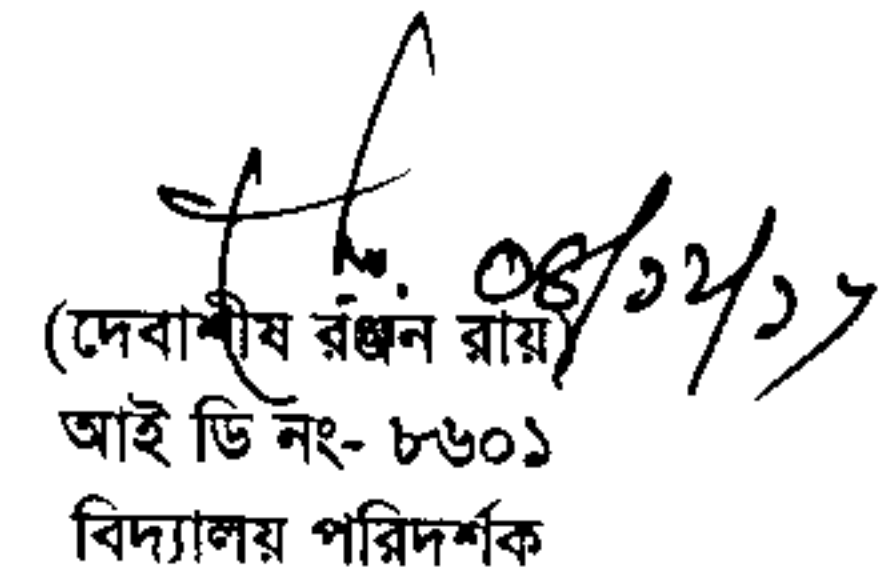 ০৪/১২/১৭
(দেবাশীষ রঞ্জন রায়)
আই ডি নং- ৮৬০১
বিদ্যালয় পরিদর্শক